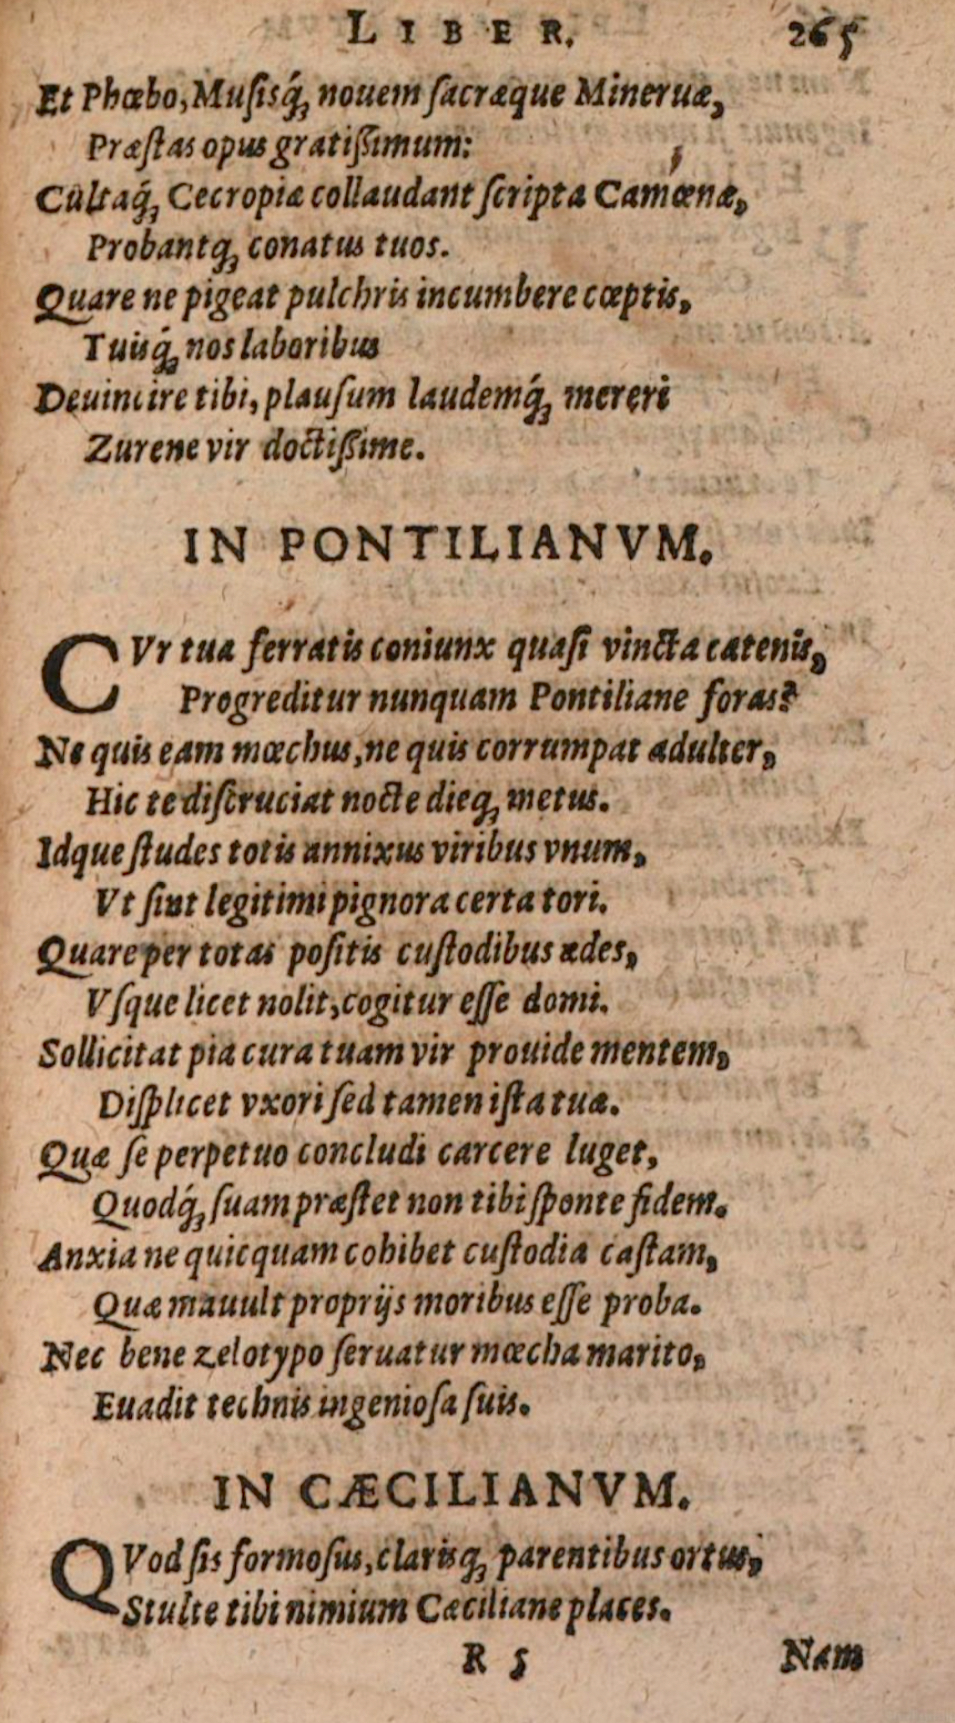 LIBER. 265
Et Phœbo, Musisq́; nouem sacræque Mineruæ,
Præstas opus gratissimum:
Cùltaq́; Cecropiæ collaudant scripta Camœnæ,
Probantq; conatus tuos.
Quare ne pigeat pulchris incumbere cœptis,
Tuisq́; nos laboribus
Deuincire tibi, plausum laudemq́; mereri
Zurene vir doctissime.
IN PONTILIANVM.
CVr tua ferratis coniunx quasi vincta catenis,
Progreditur nunquam Pontiliane foras?
Ne quis eam mœchus, ne quis corrumpat adulter,
Hic te discruciat nocte dieq; metus.
Idque studes totis annixus viribus vnum,
Vt sint legitimi pignora certa tori.
Quare per totas positis custodibus ædes,
Vsque licet nolit, cogitur esse domi.
Sollicitat pia cura tuam vir prouide mentem,
Displicet vxori sed tamen ista tuæ.
Quæ se perpetuo concludi carcere luget,
Quodq́; suam præstet non tibi sponte fidem.
Anxia ne quicquam cohibet custodia castam,
Quæ mauult proprijs moribus esse proba.
Nec bene zelotypo seruatur mœcha marito,
Euadit technis ingeniosa suis.
IN CÆCILIANVM.
QVod sis formosus, clarisq; parentibus ortus,
Stulte tibi nimium Cæciliane places.
R 5 Nam